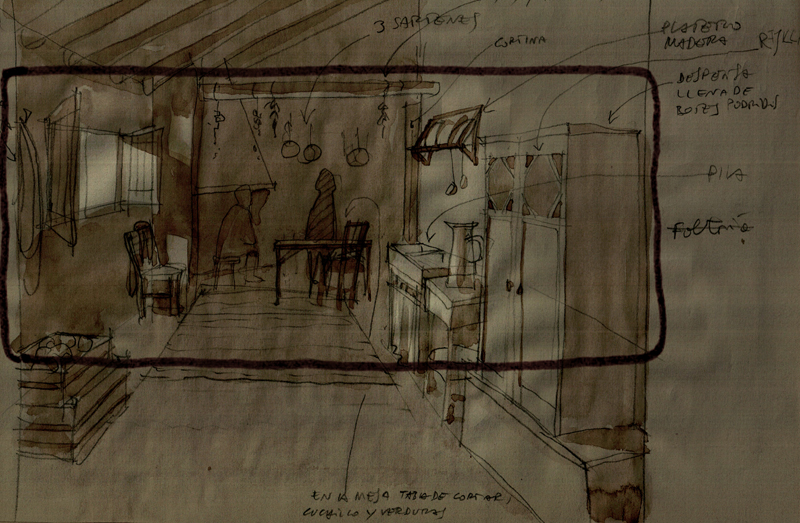 3 SARTENES
CORTINA
PLATERO
MADERA
DESPENSA
LLENA DE
BOTES PODRIDOS
PILA
EN LA MESA TABLA DE CORTAR,
CUCHILLO Y VERDURAS